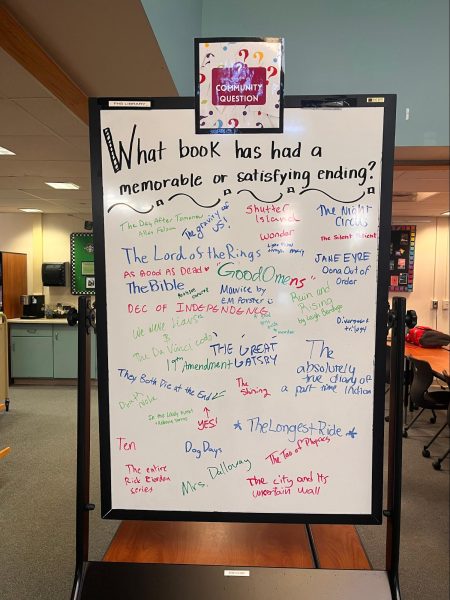 COMMUNITY
QUESTION
FHS LIBRARY
What book has had a
memorable or satisfying ending?
The Day After Tomorrow
Allan Folsom
The gravity of
US!
Shutter
Island
wonder
The Night
Circus
The Silent Patient
The Lord of the Rings
AS GOOD AS DEAD
"Good Omens"
JANE EYRE
Oona Out of
Order
The Bible
Maurice by
EM Forster
DEC OF INDEPENDENCE
Ruin and
Rising
by Leigh Bardugo
Divergent
trilogy
We Were Liars
The Da Vinci code
19th Amendment
THE GREAT
GATSBY
The
absolutely
true diary of
a part time Indian
They Both Die at the End
The
Shining
YES!
*The Longest Ride*
Ten
Dog Days
The Tao of Physics
The entire
Rick Riordan
series
Mrs. Dalloway
The city and Its
uncertain wall